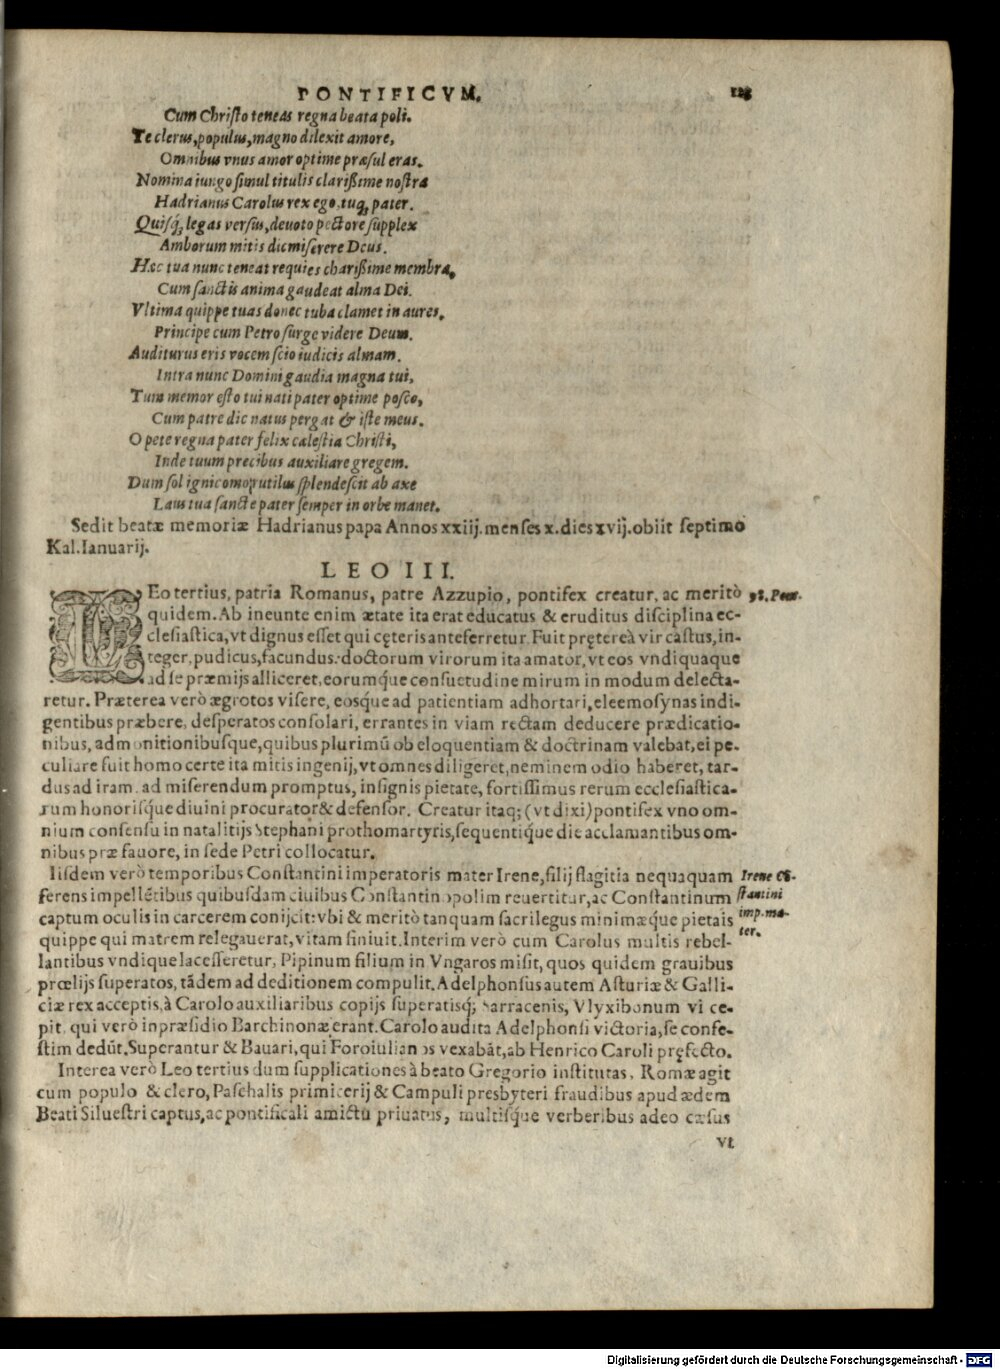 PONTIFICVM.
Cum Christo teneas regna beata poli.
Te clerus, populus, magno dilexit amore,
Omnibus vnus amor optime præsul eras.
Nomina iungo simul titulis clarißime nostra
Hadrianus Carolus rex ego, tuq; pater.
Quisq́; legas versus, deuoto pectore supplex
Amborum mitis dic miserere Deus.
Hæc tua nunc teneat requies charißime membra,
Cum sanctis anima gaudeat alma Dei.
Vltima quippe tuas donec tuba clamet in aures,
Principe cum Petro surge videre Deum.
Auditurus eris vocem scio iudicis almam.
Intra nunc Domini gaudia magna tui,
Tum memor esto tui nati pater optime posco,
Cum patre dic natus pergat & iste meus.
O pete regna pater felix cælestia Christi,
Inde tuum precibus auxiliare gregem.
Dum sol ignicomo rutilus splendescit ab axe
Laus tua sancte pater semper in orbe manet.
Sedit beatæ memoriæ Hadrianus papa Annos xxiij. menses x. dies xvij. obiit septimo
Kal. Ianuarij.
LEO III.
LEo tertius, patria Romanus, patre Azzupio, pontifex creatur, ac meritò 98. Pont.
quidem. Ab ineunte enim ætate ita erat educatus & eruditus disciplina ec-
clesiastica, vt dignus esset qui cęteris anteferretur. Fuit pręterea vir castus, in-
teger, pudicus, facundus: doctorum virorum ita amator, vt eos vndiquaque
ad se præmijs alliceret, eorumq́ue consuetudine mirum in modum delecta-
retur. Præterea verò ægrotos visere, eosque ad patientiam adhortari, eleemosynas indi-
gentibus præbere, desperatos consolari, errantes in viam rectam deducere prædicatio-
nibus, admonitionibusque, quibus plurimū ob eloquentiam & doctrinam valebat, ei pe-
culiare fuit homo certe ita mitis ingenij, vt omnes diligeret, neminem odio haberet, tar-
dus ad iram, ad miserendum promptus, insignis pietate, fortissimus rerum ecclesiastica-
rum honorisq́ue diuini procurator & defensor. Creatur itaq; (vt dixi) pontifex vno om-
nium consensu in natalitijs Stephani prothomartyris, sequentiq́ue die acclamantibus om-
nibus præ fauore, in sede Petri collocatur.
Iisdem verò temporibus Constantini imperatoris mater Irene, filij flagitia nequaquam Irene Cō-
ferens impellētibus quibusdam ciuibus Constantinopolim reuertitur, ac Constantinum stantini
captum oculis in carcerem conijcit: vbi & meritò tanquam sacrilegus minimæque pietais imp. ma-
quippe qui matrem relegauerat, vitam finiuit. Interim verò cum Carolus multis rebel- ter.
lantibus vndique lacesseretur, Pipinum filium in Vngaros misit, quos quidem grauibus
prœlijs superatos, tādem ad deditionem compulit. Adelphonsus autem Asturiæ & Galli-
ciæ rex acceptis, à Carolo auxiliaribus copijs superatisq; Sarracenis, Vlyxibonum vi ce-
pit. qui verò in præsidio Barchinonæ erant. Carolo audita Adelphonsi victoria, se confe-
stim dedūt. Superantur & Bauari, qui Foroiulianos vexabāt, ab Henrico Caroli pręfecto.
Interea verò Leo tertius dum supplicationes à beato Gregorio institutas, Romæ agit
cum populo & clero, Paschalis primicerij & Campuli presbyteri fraudibus apud ædem
Beati Siluestri captus, ac pontificali amictu priuatus, multisq́ue verberibus adeo cæsus
vt
Digitalisierung gefördert durch die Deutsche Forschungsgemeinschaft - DFG